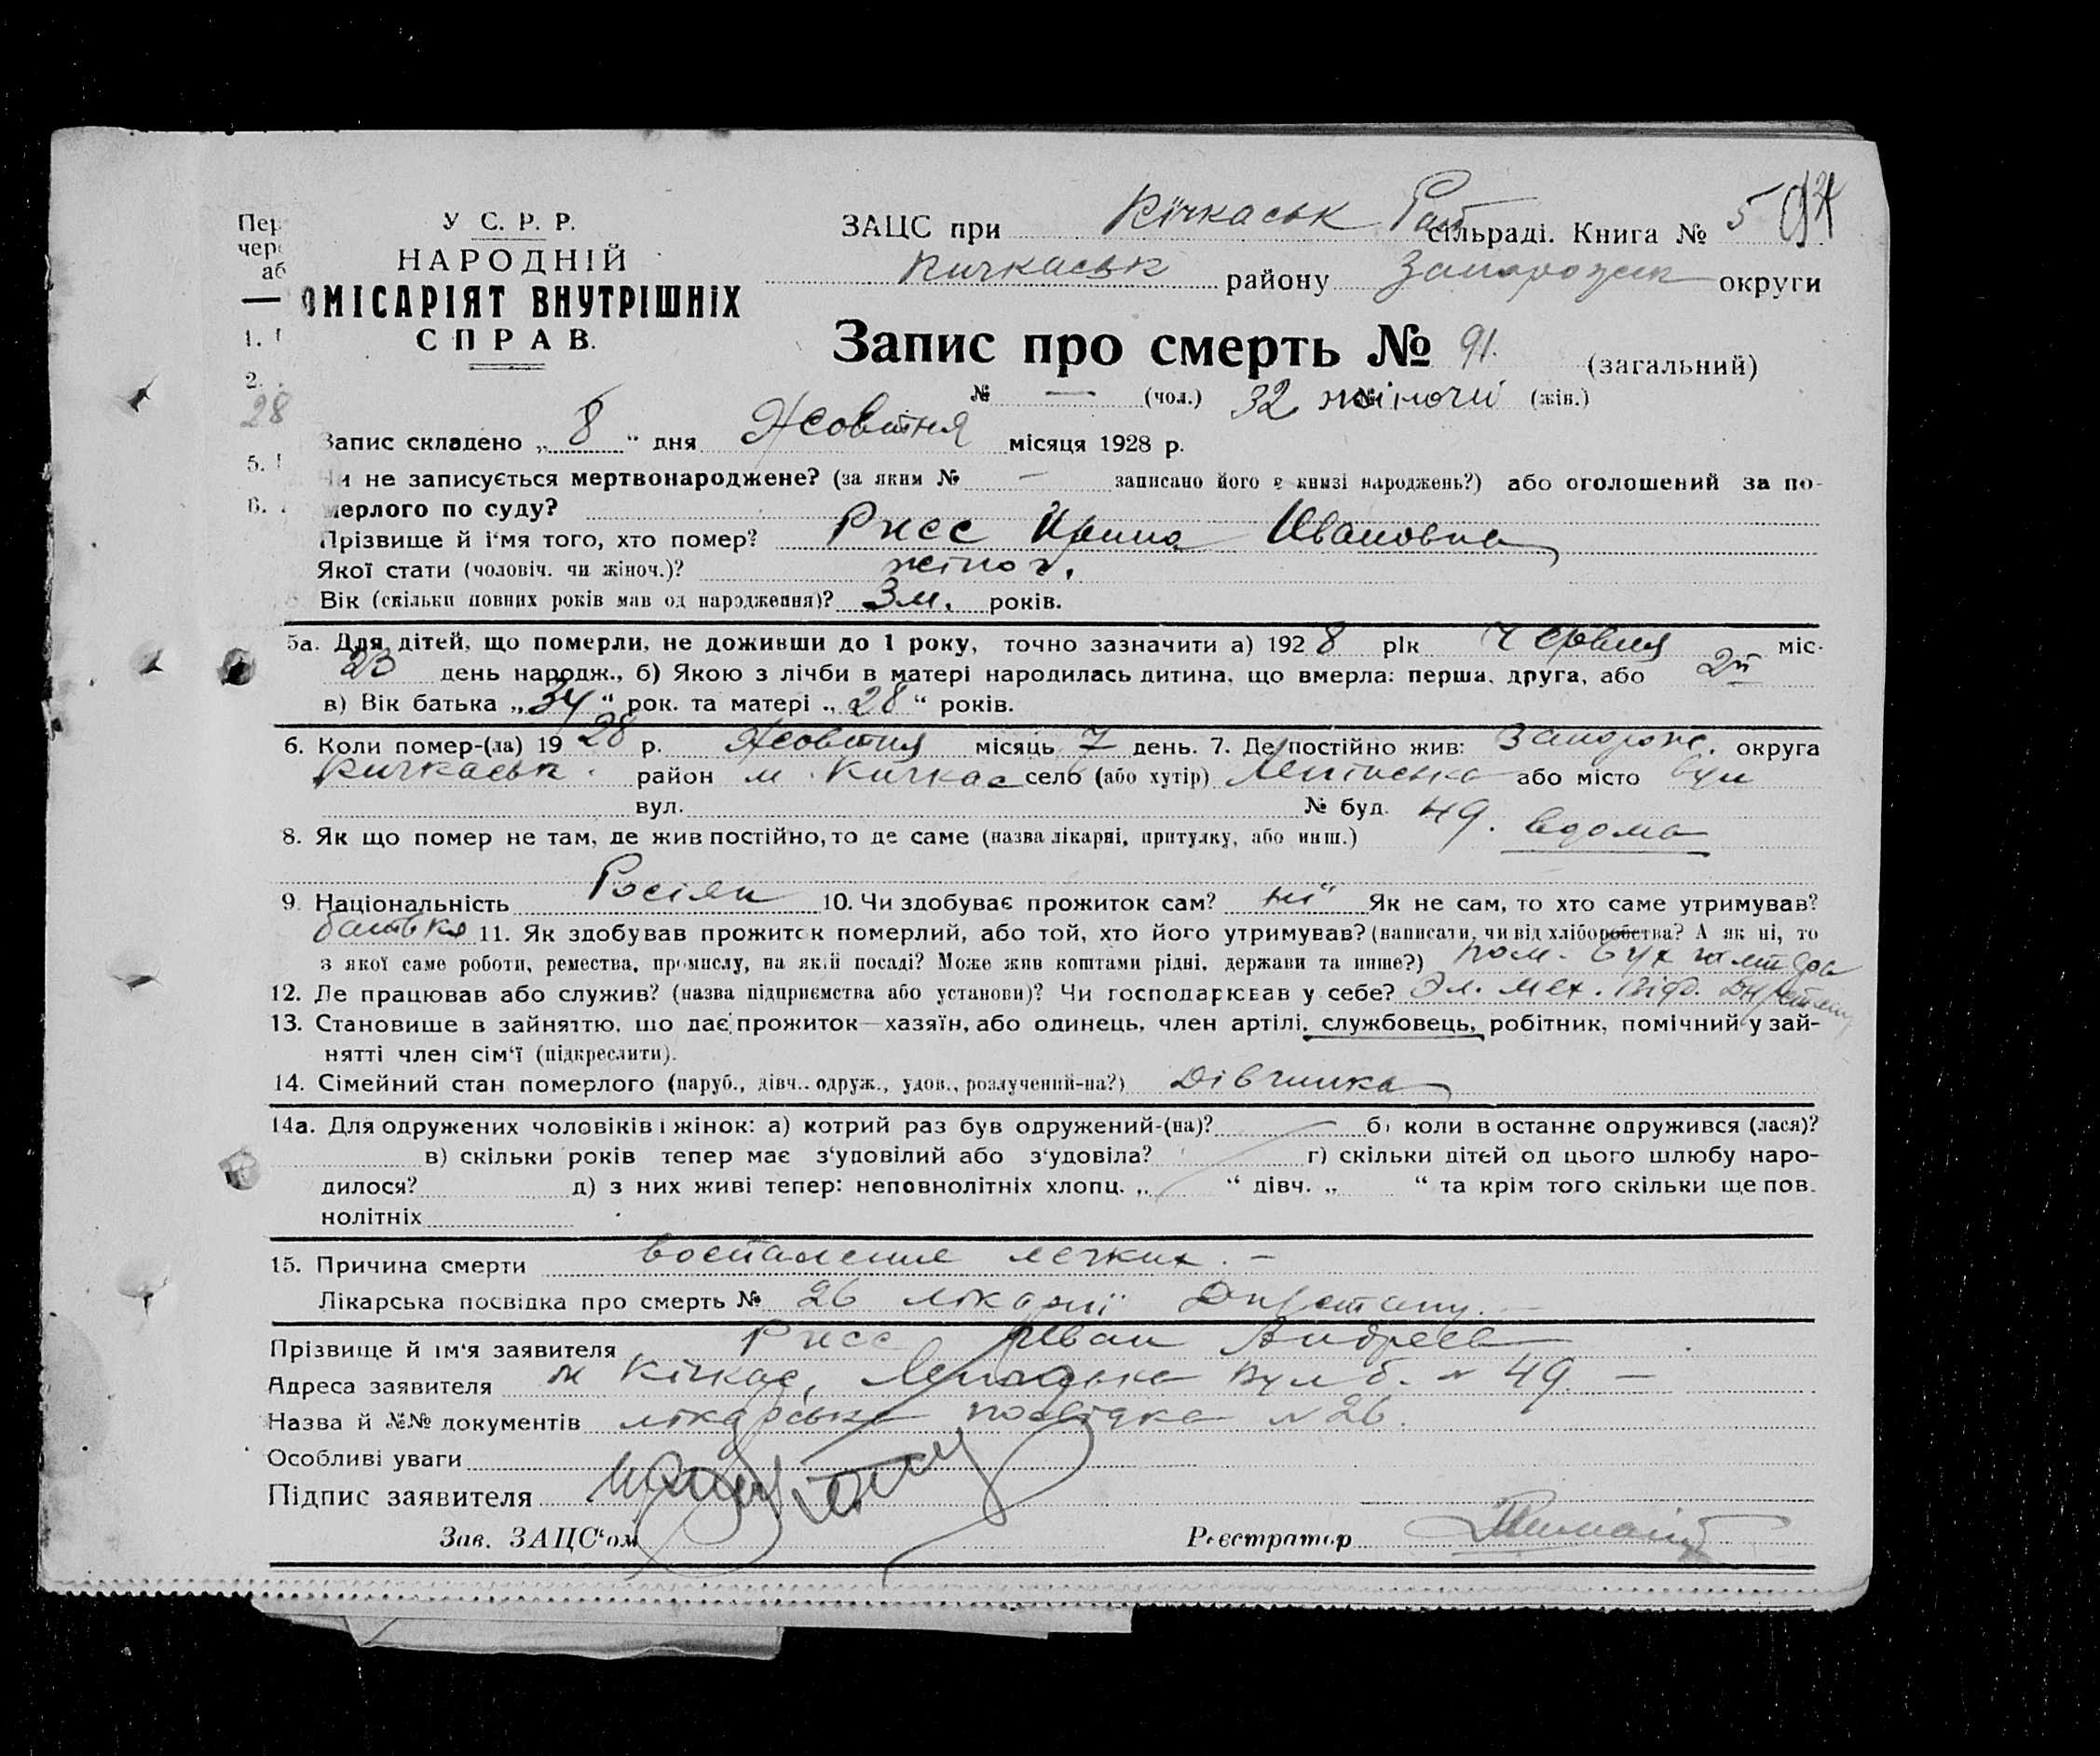 Пер
чер
аб
1.
2.
28
5.
6.
У С. Р. Р.
НАРОДНІЙ
ОМІСАРІЯТ ВНУТРІШНІХ
СПРАВ.
ЗАЦС при Кічкаськ Рай сільраді. Книга № 5
Кичкаськ району Запорозьк округи
Запис про смерть № 91. (загальний)
№ — (чол.) 32 жіночи (жін.)
Запис складено „ 8 “ дня Жовтня місяця 1928 р.
Чи не записується мертвонароджене? (за яким № — записано його в книзі народжень?) або оголошений за по-
мерлого по суду?
Прізвище й і‘мя того, хто помер? Рисс Ирина Ивановна
Якої стати (чоловіч. чи жіноч.)? жіноч.
Вік (скільки повних років мав од народження)? 3 м. років.
5а. Для дітей, що померли, не доживши до 1 року, точно зазначити а) 1928 рік Червня міс.
23 день народж., б) Якою з лічби в матері народилась дитина, що вмерла: перша, друга, або 2й
в) Вік батька „34“ рок. та матері „28“ років.
6. Коли помер-(ла) 1928 р. Жовтня місяць 7 день. 7. Де постійно жив: Запорож. округа
Кичкаськ. район м. Кичкас село (або хутір) Ленінська або місто вул
вул. № буд. 49.
8. Як що помер не там, де жив постійно, то де саме (назва лікарні, притулку, або инш.) вдома
9. Національність Росіян 10. Чи здобуває прожиток сам? ні Як не сам, то хто саме утримував?
батько 11. Як здобував прожиток померлий, або той, хто його утримував? (написати, чи від хліборобства? А як ні, то
з якої саме роботи, ремества, промислу, на якій посаді? Може жив коштами рідні, держави та инше?) пом. бухгалтера
12. Де працював або служив? (назва підприємства або установи)? Чи господарював у себе? Эл. Мех. Від. Дніпрстану
13. Становище в зайняттю, що дає прожиток—хазяїн, або одинець, член артілі, службовець, робітник, помічний у зай-
нятті член сім‘ї (підкреслити).
14. Сімейний стан померлого (паруб., дівч., одруж., удов., розлучений-на?) Дівчинка
14а. Для одружених чоловіків і жінок: а) котрий раз був одружений-(на)? б) коли востаннє одружився (лася)?
в) скільки років тепер має з‘удовілий або з‘удовіла? г) скільки дітей од цього шлюбу наро-
дилося? д) з них живі тепер: неповнолітніх хлопц. „ “ дівч. „ “ та крім того скільки ще пов.
нолітніх
15. Причина смерти воспаление легких. —
Лікарська посвідка про смерть № 26 лікарні Дніпрстану. —
Прізвище й ім‘я заявителя Рисс Иван Андреев
Адреса заявителя м Кічкас, Ленінська вул б. № 49 —
Назва й №№ документів лікарська посвідка № 26.
Особливі уваги
Підпис заявителя
Зав. ЗАЦС‘ом Реєстратор